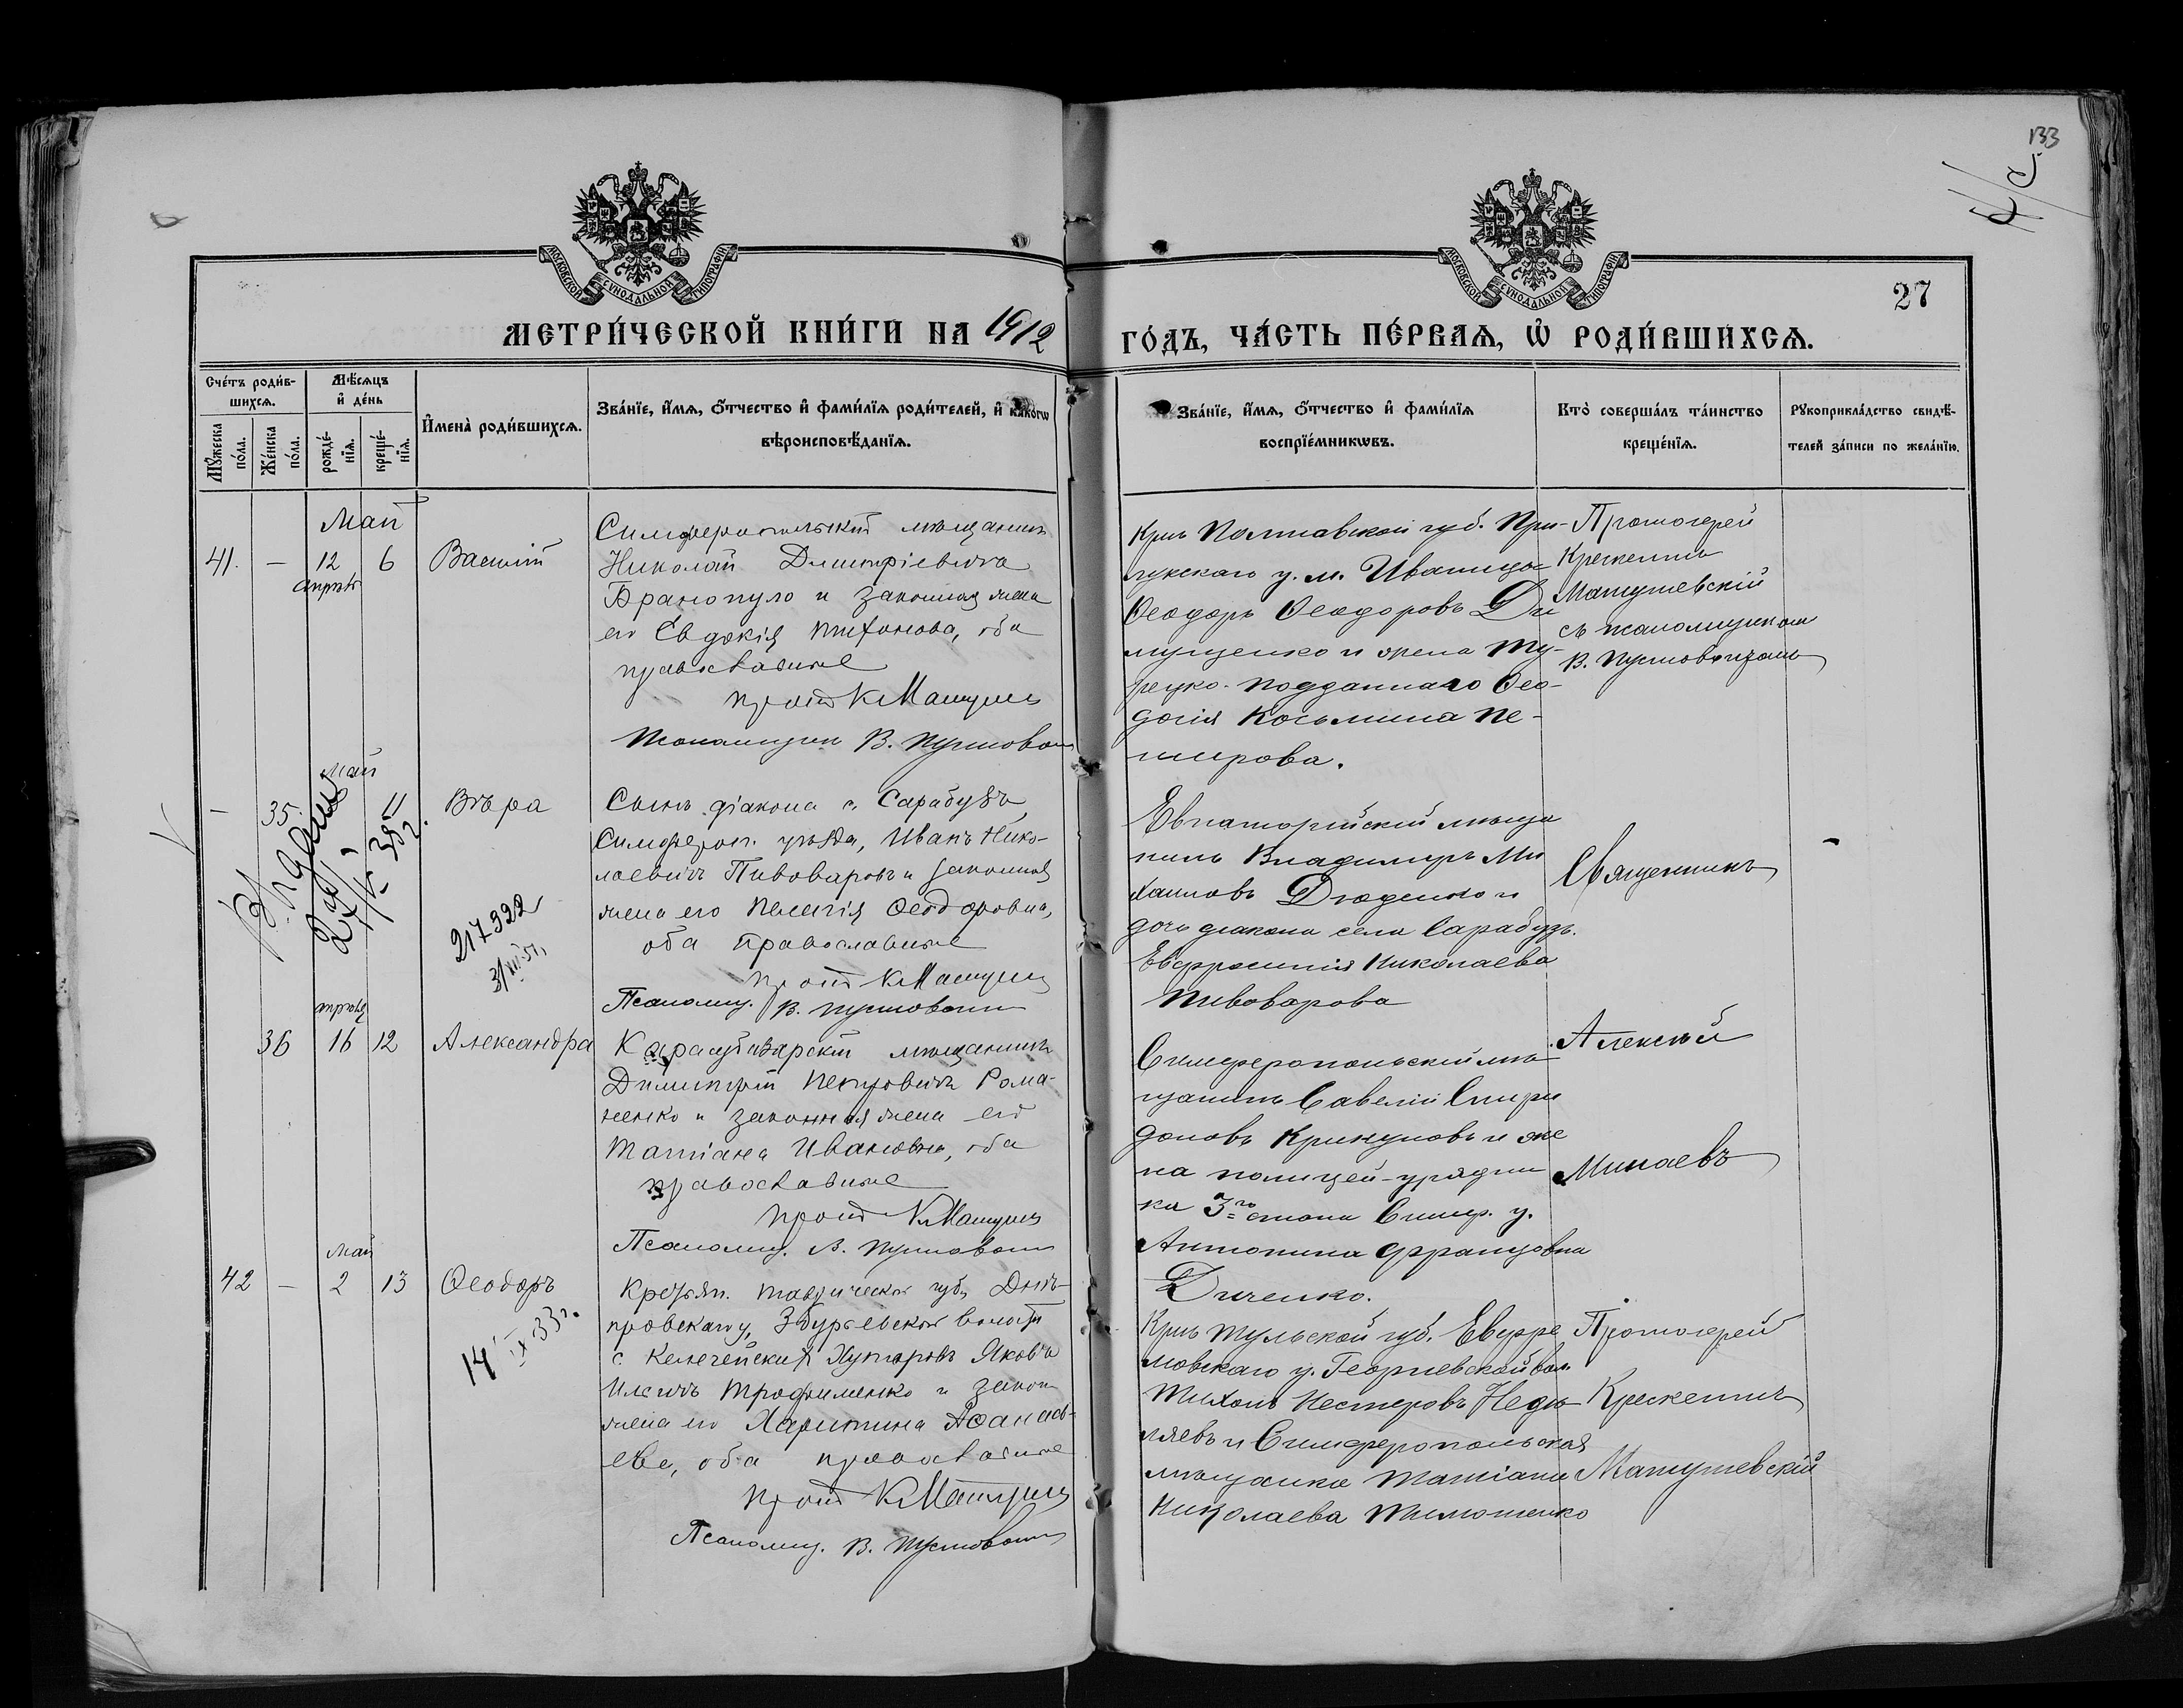 133
27
МОСКОВСКОЙ СѴНОДАЛЬНОЙ ТИПОГРАФІИ
МОСКОВСКОЙ СѴНОДАЛЬНОЙ ТИПОГРАФІИ
МЕТРИ́ЧЕСКОЙ КНИ́ГИ НА 1912 ГО́ДЪ, ЧА́СТЬ ПЕ́РВАѦ, Ѡ҆ РОДИ́ВШИХСѦ.
Сче́тъ роди́в-
шихсѧ.
Мѣ́сѧцъ
и҆ де́нь
Мꙋ́жеска по́ла.
Же́нска по́ла.
рожде́-
нїѧ.
креще́-
нїѧ.
И҆мена̀ роди́вшихсѧ.
Зва́нїе, и҆́мѧ, ѻ҆́тчество и҆ фами́лїѧ роди́телей, и҆ како́гѡ
вѣроисповѣ́данїѧ.
Зва́нїе, и҆́мѧ, ѻ҆́тчество и҆ фами́лїѧ
воспрїе́мникѡвъ.
Кто̀ соверша́лъ та́инство
креще́нїѧ.
Рꙋкоприкла́дство свидѣ́-
телей за́писи по жела́нїю.
Май
41. — 12 6 Василій
апрѣль
Симферопольскій мѣщанинъ
Николай Димитріевичъ
Бранопуло и законная жена
его Евдокія Тихонова, оба
православные
прот К Матуш
Псаломщик В. Пустовой
Крнъ Полтавской губ. При-
лукскаго у. м. Иваница
Ѳеодоръ Ѳеодоровъ Ди
мущенко и жена Ту-
рецко-подданнаго Ѳео-
досія Косьмина Пе-
широва.
Протоіерей
Крискентъ
Матушевскій
съ псаломщиком
В. Пустовойтом
май
— 35. 11 Вѣра
217322
31/XII 51.
Сынъ діакона с. Сарабузъ,
Симфероп. уѣзда, Иванъ Нико-
лаевичъ Пивоваровъ и законная
жена его Пелагія Ѳеодоровна,
оба Православные
прот К Матуш
Псаломщ. В. Пустовой
Евпаторійскій мѣща
нинъ Владимиръ Ми
хаиловъ Дюденко и
дочь діакона села Сарабузъ.
Евфросинія Николаева
Пивоварова
Священникъ
апрѣль
36 16 12 Александра
Карасубазарскій мѣщанинъ
Димитрій Петровичъ Рома-
ненко и законная жена его
Татіана Ивановна, оба
православные
прот К Матуш
Псаломщ. В. Пустовой
Симферопольскій мѣ
щанинъ Савелій Спири
доновъ Крикуновъ и же
на полицей-урядни
ка 3го стана Симф. у.
Антонина Францовна
Диченко.
Алексѣй
Минаевъ
май
42 — 2 13 Ѳеодоръ
14 IX 33 г.
Крестьян. Таврической губ, Днѣ-
провскаго у, Збурьевской волости
с. Келегейскихъ Хуторовъ Яковъ
Ильичъ Трофименко и закон
жена его Харитина Аѳанась-
ева, оба православные
прот К Матуш
Псаломщ. В. Пустовой
Крнъ Тульской губ. Евфре
мовскаго у. Георгіевской вол.
Тихонъ Нестеровъ Недѣ
ляевъ и Симферопольская
мѣщанка Татіана
Николаева Тимошенко
Протоіерей
Крискентъ
Матушевскій